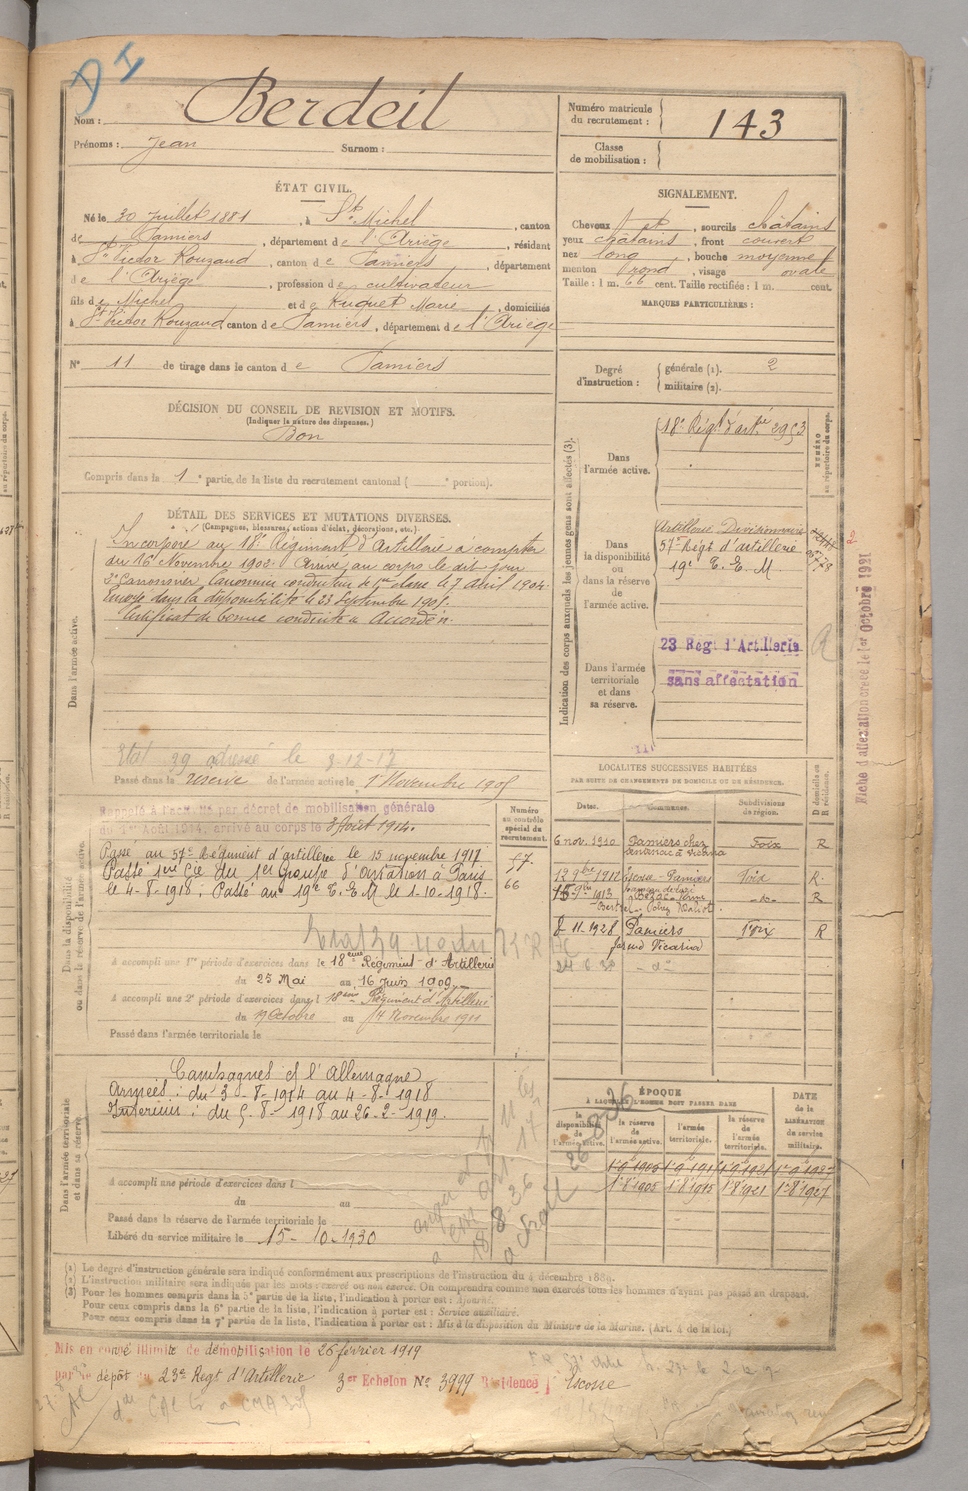 DI
Nom : Berdeil
Prénoms : Jean Surnom :
Numéro matricule du recrutement : 143
Classe de mobilisation :
ÉTAT CIVIL.
Né le 20 Juillet 1881, à St Michel, canton
de Pamiers, département de l'Ariège, résidant
à St Victor Rouzaud, canton de Pamiers, département
de l'Ariège, profession de cultivateur
fils de Michel et de Ruquet Marie, domiciliés
à St Victor Rouzaud canton de Pamiers, département de l'Ariège
SIGNALEMENT.
Cheveux et, sourcils châtains
yeux châtains, front couvert
nez long, bouche moyenne
menton rond, visage ovale
Taille : 1 m. 66 cent. Taille rectifiée : 1 m. cent.
MARQUES PARTICULIÈRES :
N° 11 de tirage dans le canton de Pamiers
Degré d'instruction : générale (1). 2
militaire (2).
DÉCISION DU CONSEIL DE REVISION ET MOTIFS.
(Indiquer la nature des dispenses.)
Bon
Compris dans la 1e partie de la liste du recrutement cantonal ( e portion).
DÉTAIL DES SERVICES ET MUTATIONS DIVERSES.
(Campagnes, blessures, actions d'éclat, décorations, etc.)
Dans l'armée active.
Incorporé au 18e Régiment d'Artillerie à compter
du 16 Novembre 1902. Arrivé au corps le dit jour
2e Canonnier. Canonnier conducteur de 1re classe le 7 avril 1904.
Envoyé dans la disponibilité le 23 Septembre 1905.
Certificat de bonne conduite "Accordé".
Etat 29 adressé le 8-12-17
Passé dans la réserve de l'armée active le 1er Novembre 1905
Indication des corps auxquels les jeunes gens sont affectés (3).
NUMÉRO au répertoire du corps.
Dans l'armée active.
18e Régt d'artie 2953
Dans la disponibilité ou dans la réserve de l'armée active.
Artillerie Divisionnaire
57e Régt d'artillerie
19e E.E.M
Dans l'armée territoriale et dans sa réserve.
23 Régt d'Artillerie
sans affectation
Fiche d'affectation créée le 1er Octobre 1921
Dans la disponibilité ou dans la réserve de l'armée active.
Rappelé à l'activité par décret de mobilisation générale
du 1er Août 1914, arrivé au corps le 3 Août 1914.
Passé au 57e Régiment d'artillerie le 15 novembre 1917
Passé 1ère Cie du 1er Groupe d'Aviation à Paris
le 4-8-1918 ; Passé au 19e E.E.M le 1-10-1918.
Numéro au contrôle spécial du recrutement.
57
66
A accompli une 1re période d'exercices dans le 18ème Régiment d'Artillerie
du 25 Mai au 16 Juin 1909.
A accompli une 2e période d'exercices dans l 18ème Régiment d'Artillerie
du 19 Octobre au 4 Novembre 1911
Passé dans l'armée territoriale le
LOCALITÉS SUCCESSIVES HABITÉES
PAR SUITE DE CHANGEMENTS DE DOMICILE OU DE RÉSIDENCE.
Dates. Communes. Subdivisions de région. D domicile ou R résidence.
6 nov. 1910 Pamiers chez Foix R
12 9bre 1912 Escosse - Pamiers Foix R.
15 9bre 1913 -do- R
8-11-1928 Pamiers Foix R
-do-
Dans l'armée territoriale et dans sa réserve.
Campagnes c/ l'Allemagne
Armées : du 3-8-1914 au 4-8-1918
Intérieur : du 5-8-1918 au 26-2-1919.
A accompli une période d'exercices dans l
du au
Passé dans la réserve de l'armée territoriale le
Libéré du service militaire le 15-10-1930
ÉPOQUE
À LAQUELLE L'HOMME DOIT PASSER DANS
la disponibilité de l'armée active. la réserve de l'armée active. l'armée territoriale. la réserve de l'armée territoriale. DATE de la LIBÉRATION du service militaire.
1-9-1905 1-9-1915 1-9-1921 1-9-1927
1-8-1905 1-8-1915 1-8-1921 1-8-1927
(1) Le degré d'instruction générale sera indiqué conformément aux prescriptions de l'instruction du 4 décembre 1889.
(2) L'instruction militaire sera indiquée par les mots : exercé ou non exercé. On comprendra comme non exercés tous les hommes n'ayant pas passé au drapeau.
(3) Pour les hommes compris dans la 5e partie de la liste, l'indication à porter est : Ajourné.
Pour ceux compris dans la 6e partie de la liste, l'indication à porter est : Service auxiliaire.
Pour ceux compris dans la 7e partie de la liste, l'indication à porter est : Mis à la disposition du Ministre de la Marine. (Art. 4 de la loi.)
Mis en congé illimité de démobilisation le 26 février 1919
par le dépôt du 23e Régt d'Artillerie 3er Echelon No 3999 Résidence Escosse